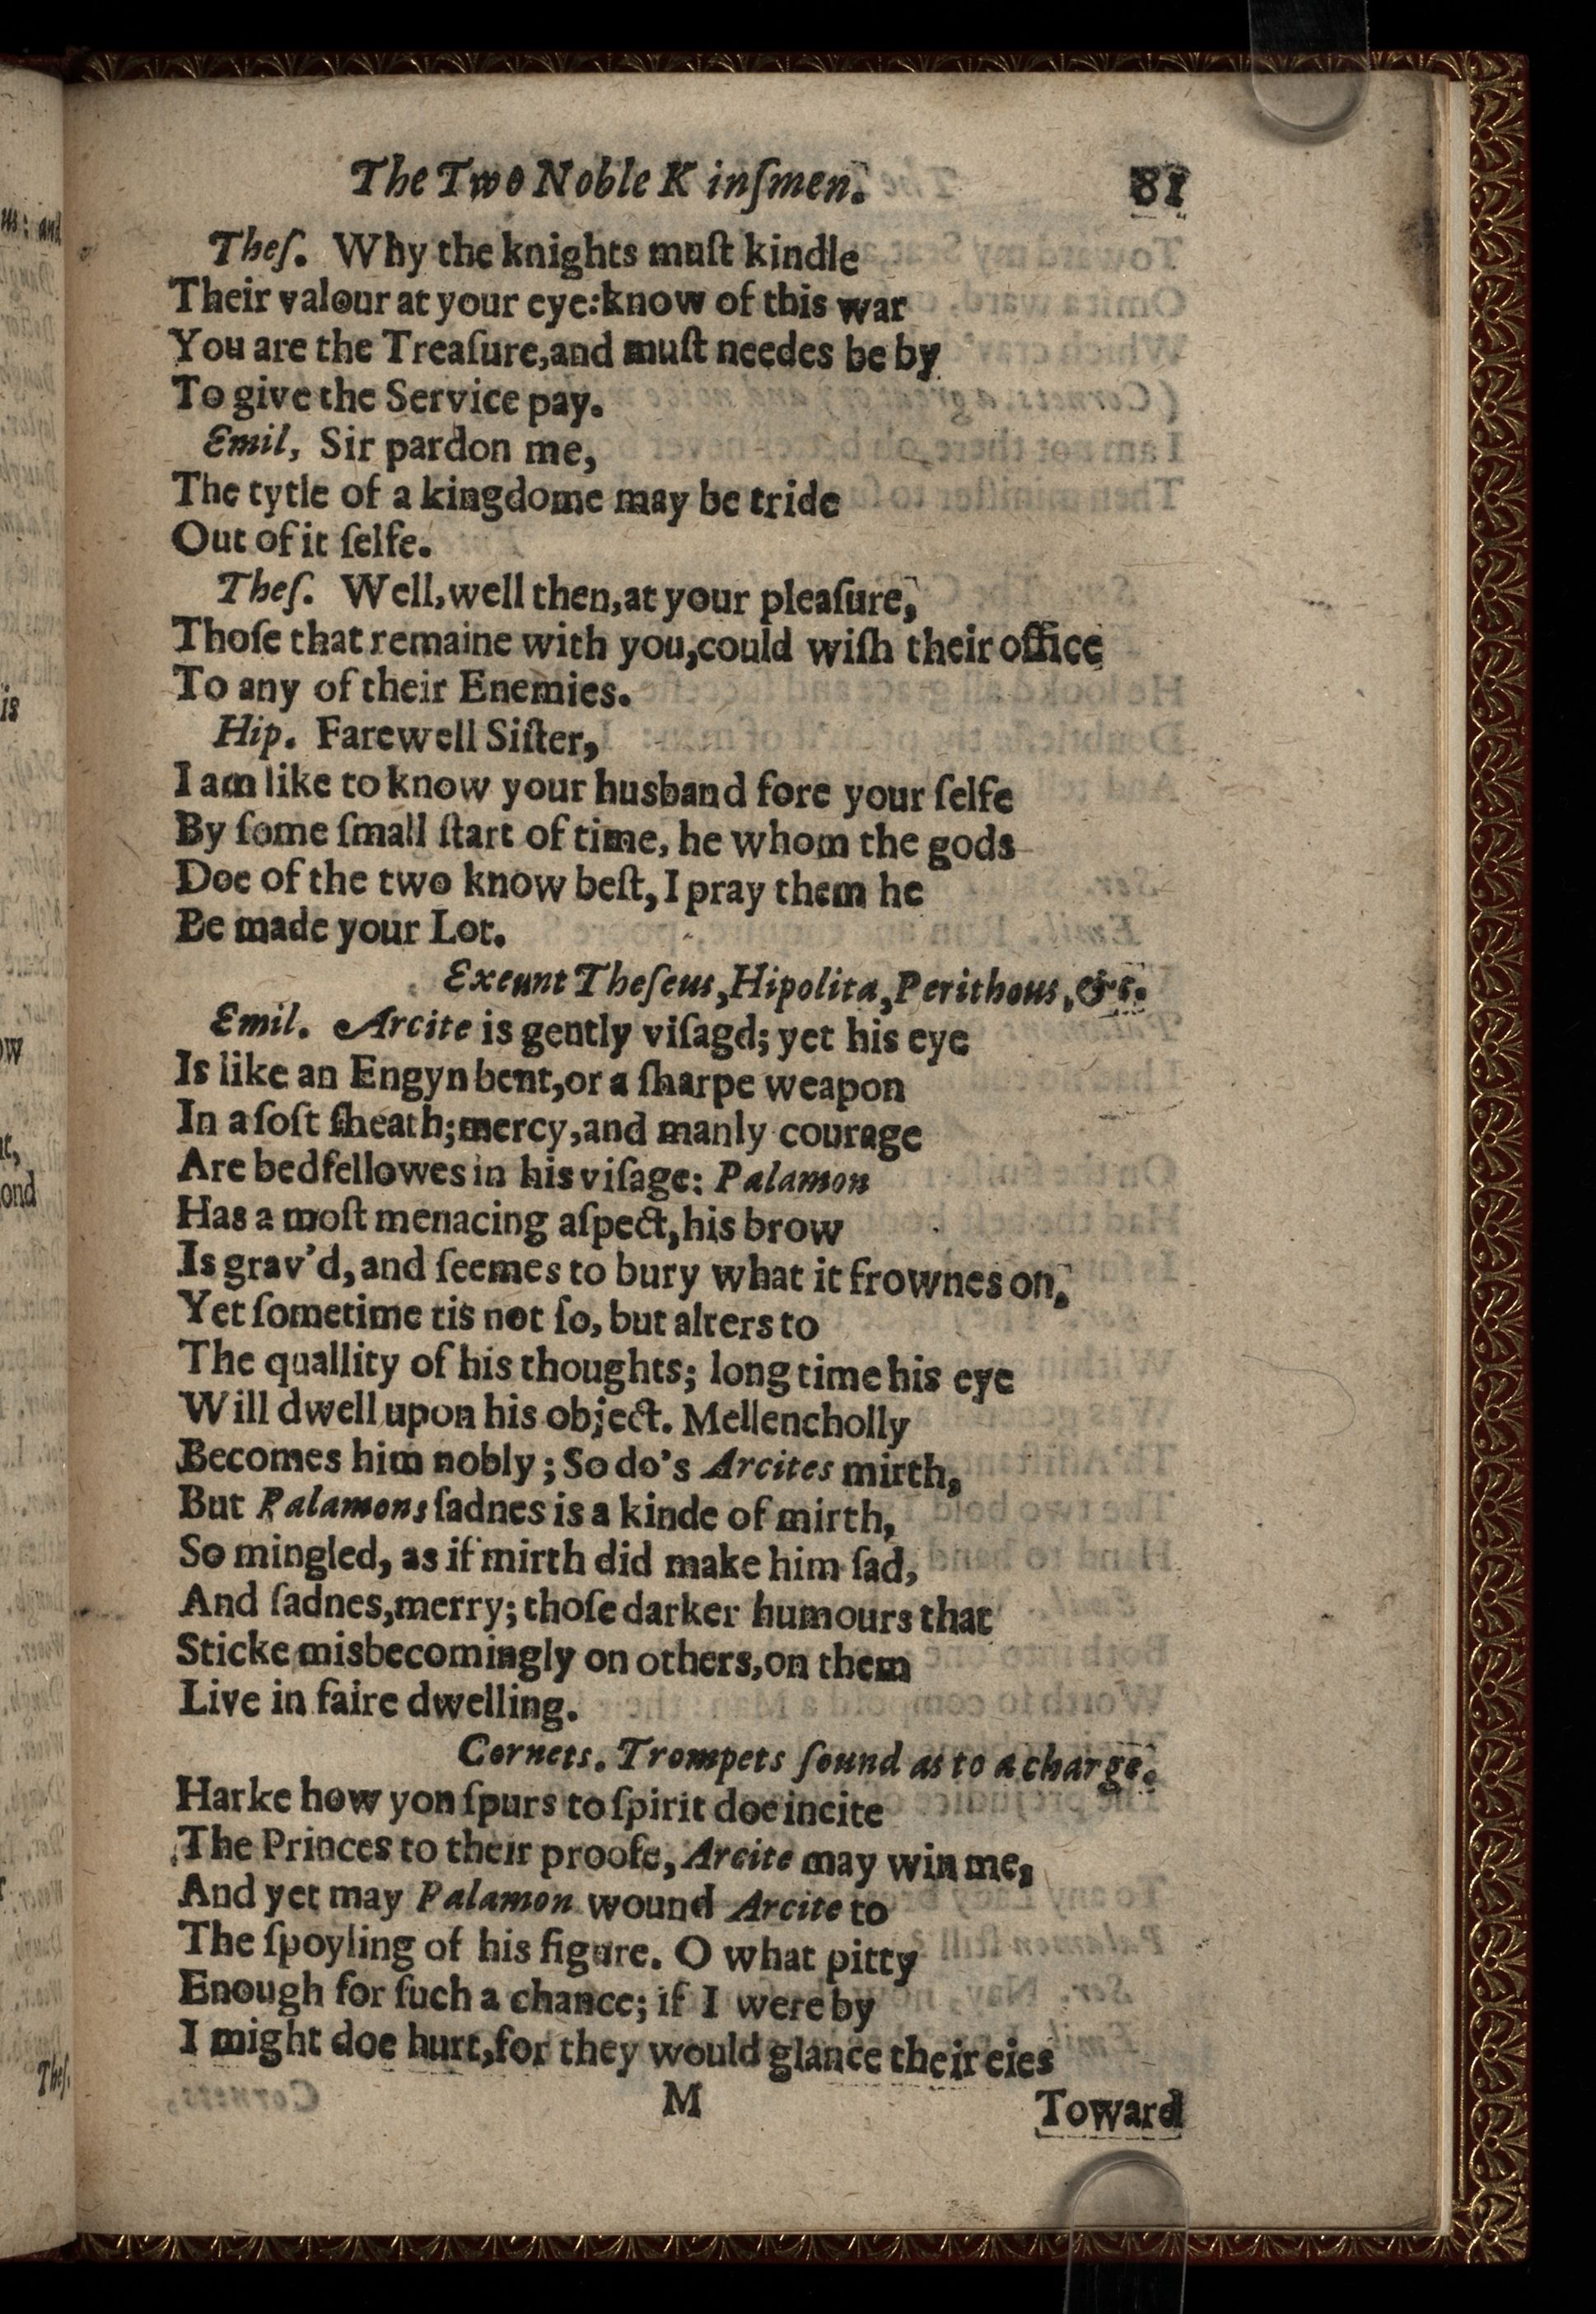 The Two Noble Kinſmen. 81
Theſ. Why the knights muſt kindle
Their valour at your eye:know of this war
You are the Treaſure,and muſt needes be by
To give the Service pay.
Emil, Sir pardon me,
The tytle of a kingdome may be tride
Out of it ſelfe.
Theſ. Well,well then,at your pleaſure,
Thoſe that remaine with you,could wiſh their office
To any of their Enemies.
Hip. Farewell Siſter,
I am like to know your husband fore your ſelfe
By ſome ſmall ſtart of time, he whom the gods
Doe of the two know beſt, I pray them he
Be made your Lot.
Exeunt Theſeus,Hipolita,Perithous,&c.
Emil. Arcite is gently viſagd; yet his eye
Is like an Engyn bent,or a ſharpe weapon
In a ſoft ſheath;mercy,and manly courage
Are bedfellowes in his viſage: Palamon
Has a moſt menacing aſpect,his brow
Is grav'd,and ſeemes to bury what it frownes on,
Yet ſometime tis not ſo, but alters to
The quallity of his thoughts; long time his eye
Will dwell upon his object. Mellencholly
Becomes him nobly; So do's Arcites mirth,
But Palamons ſadnes is a kinde of mirth,
So mingled, as if mirth did make him ſad,
And ſadnes,merry; thoſe darker humours that
Sticke misbecomingly on others,on them
Live in faire dwelling.
Cornets. Trompets ſound as to a charge.
Harke how yon ſpurs to ſpirit doe incite
The Princes to their proofe, Arcite may win me,
And yet may Palamon wound Arcite to
The ſpoyling of his figure. O what pitty
Enough for ſuch a chance; if I were by
I might doe hurt,for they would glance their eies
M Toward